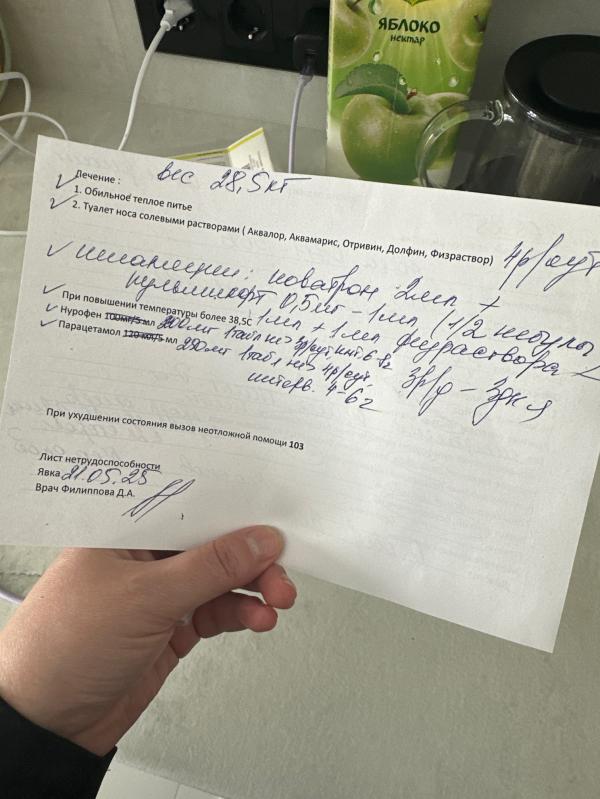 ЯБЛОКО
нектар
вес 28,5 кг
Лечение :
1. Обильное теплое питье
2. Туалет носа солевыми растворами ( Аквалор, Аквамарис, Отривин, Долфин, Физраствор) 4р/сут
ингаляции: 2мл +
пульмикорт 0,5мг - 1мл (1/2 небулы
1мл + 1мл физраствора
3р/д - 3дня
При повышении температуры более 38,5С
Нурофен 100мг/5 мл 200мг 1табл не> 3р/сут, инт. 6-8ч
Парацетамол 120 мл/5 мл 250мг 1табл не> 4р/сут,
интерв. 4-6ч
При ухудшении состояния вызов неотложной помощи 103
Лист нетрудоспособности
Явка 21.05.25
Врач Филиппова Д.А.